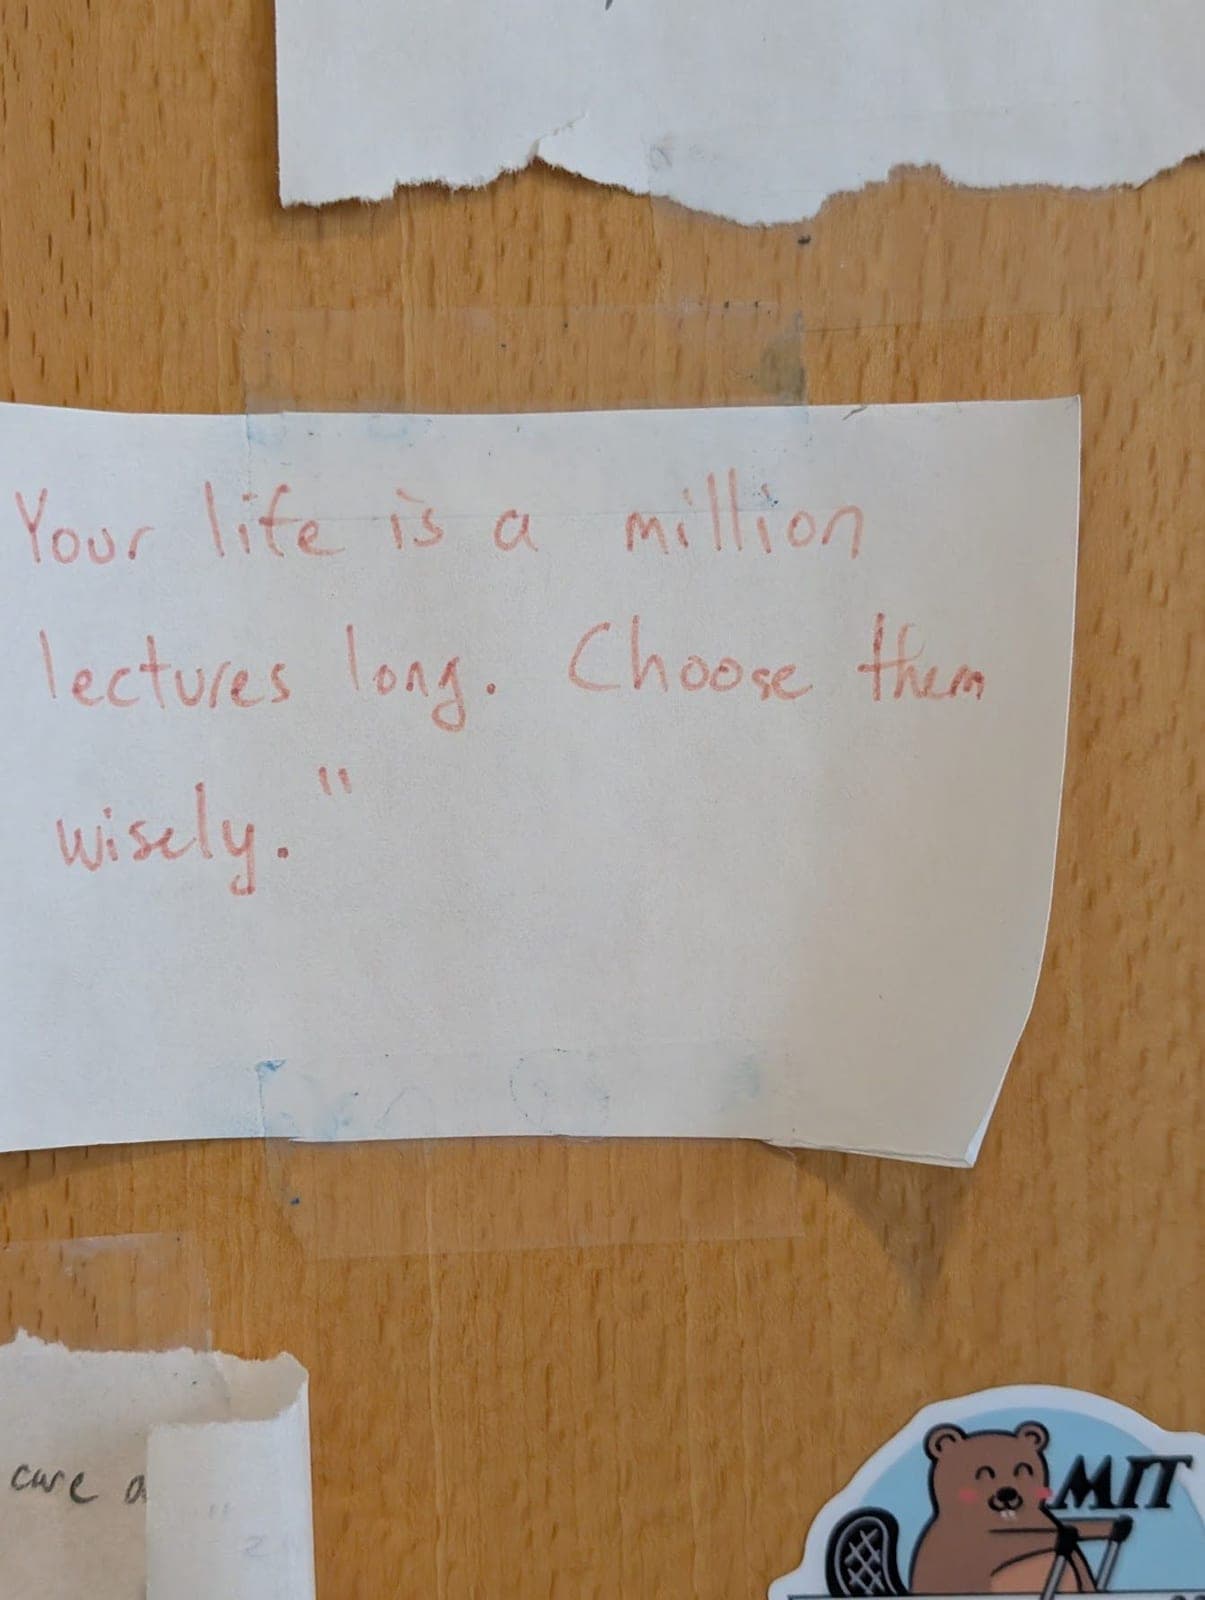 Your life is a million
lectures long. Choose them
wisely."
care a
MIT